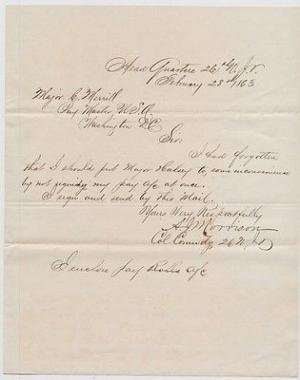 Head Quarters 26th N.J.V.
February 28th 1863
Major C. Merritt
Pay Master, U.S.A.
Washington D.C.
Sir.
I had forgotten
that I should put Major Halsey to some inconvenience
by not signing my pay a/c at once.
I sign and send by this Mail.
Yours Very Respectfully
A J Morrison
Col Commdg 26 N.J.
I enclose pay Rolls a/c